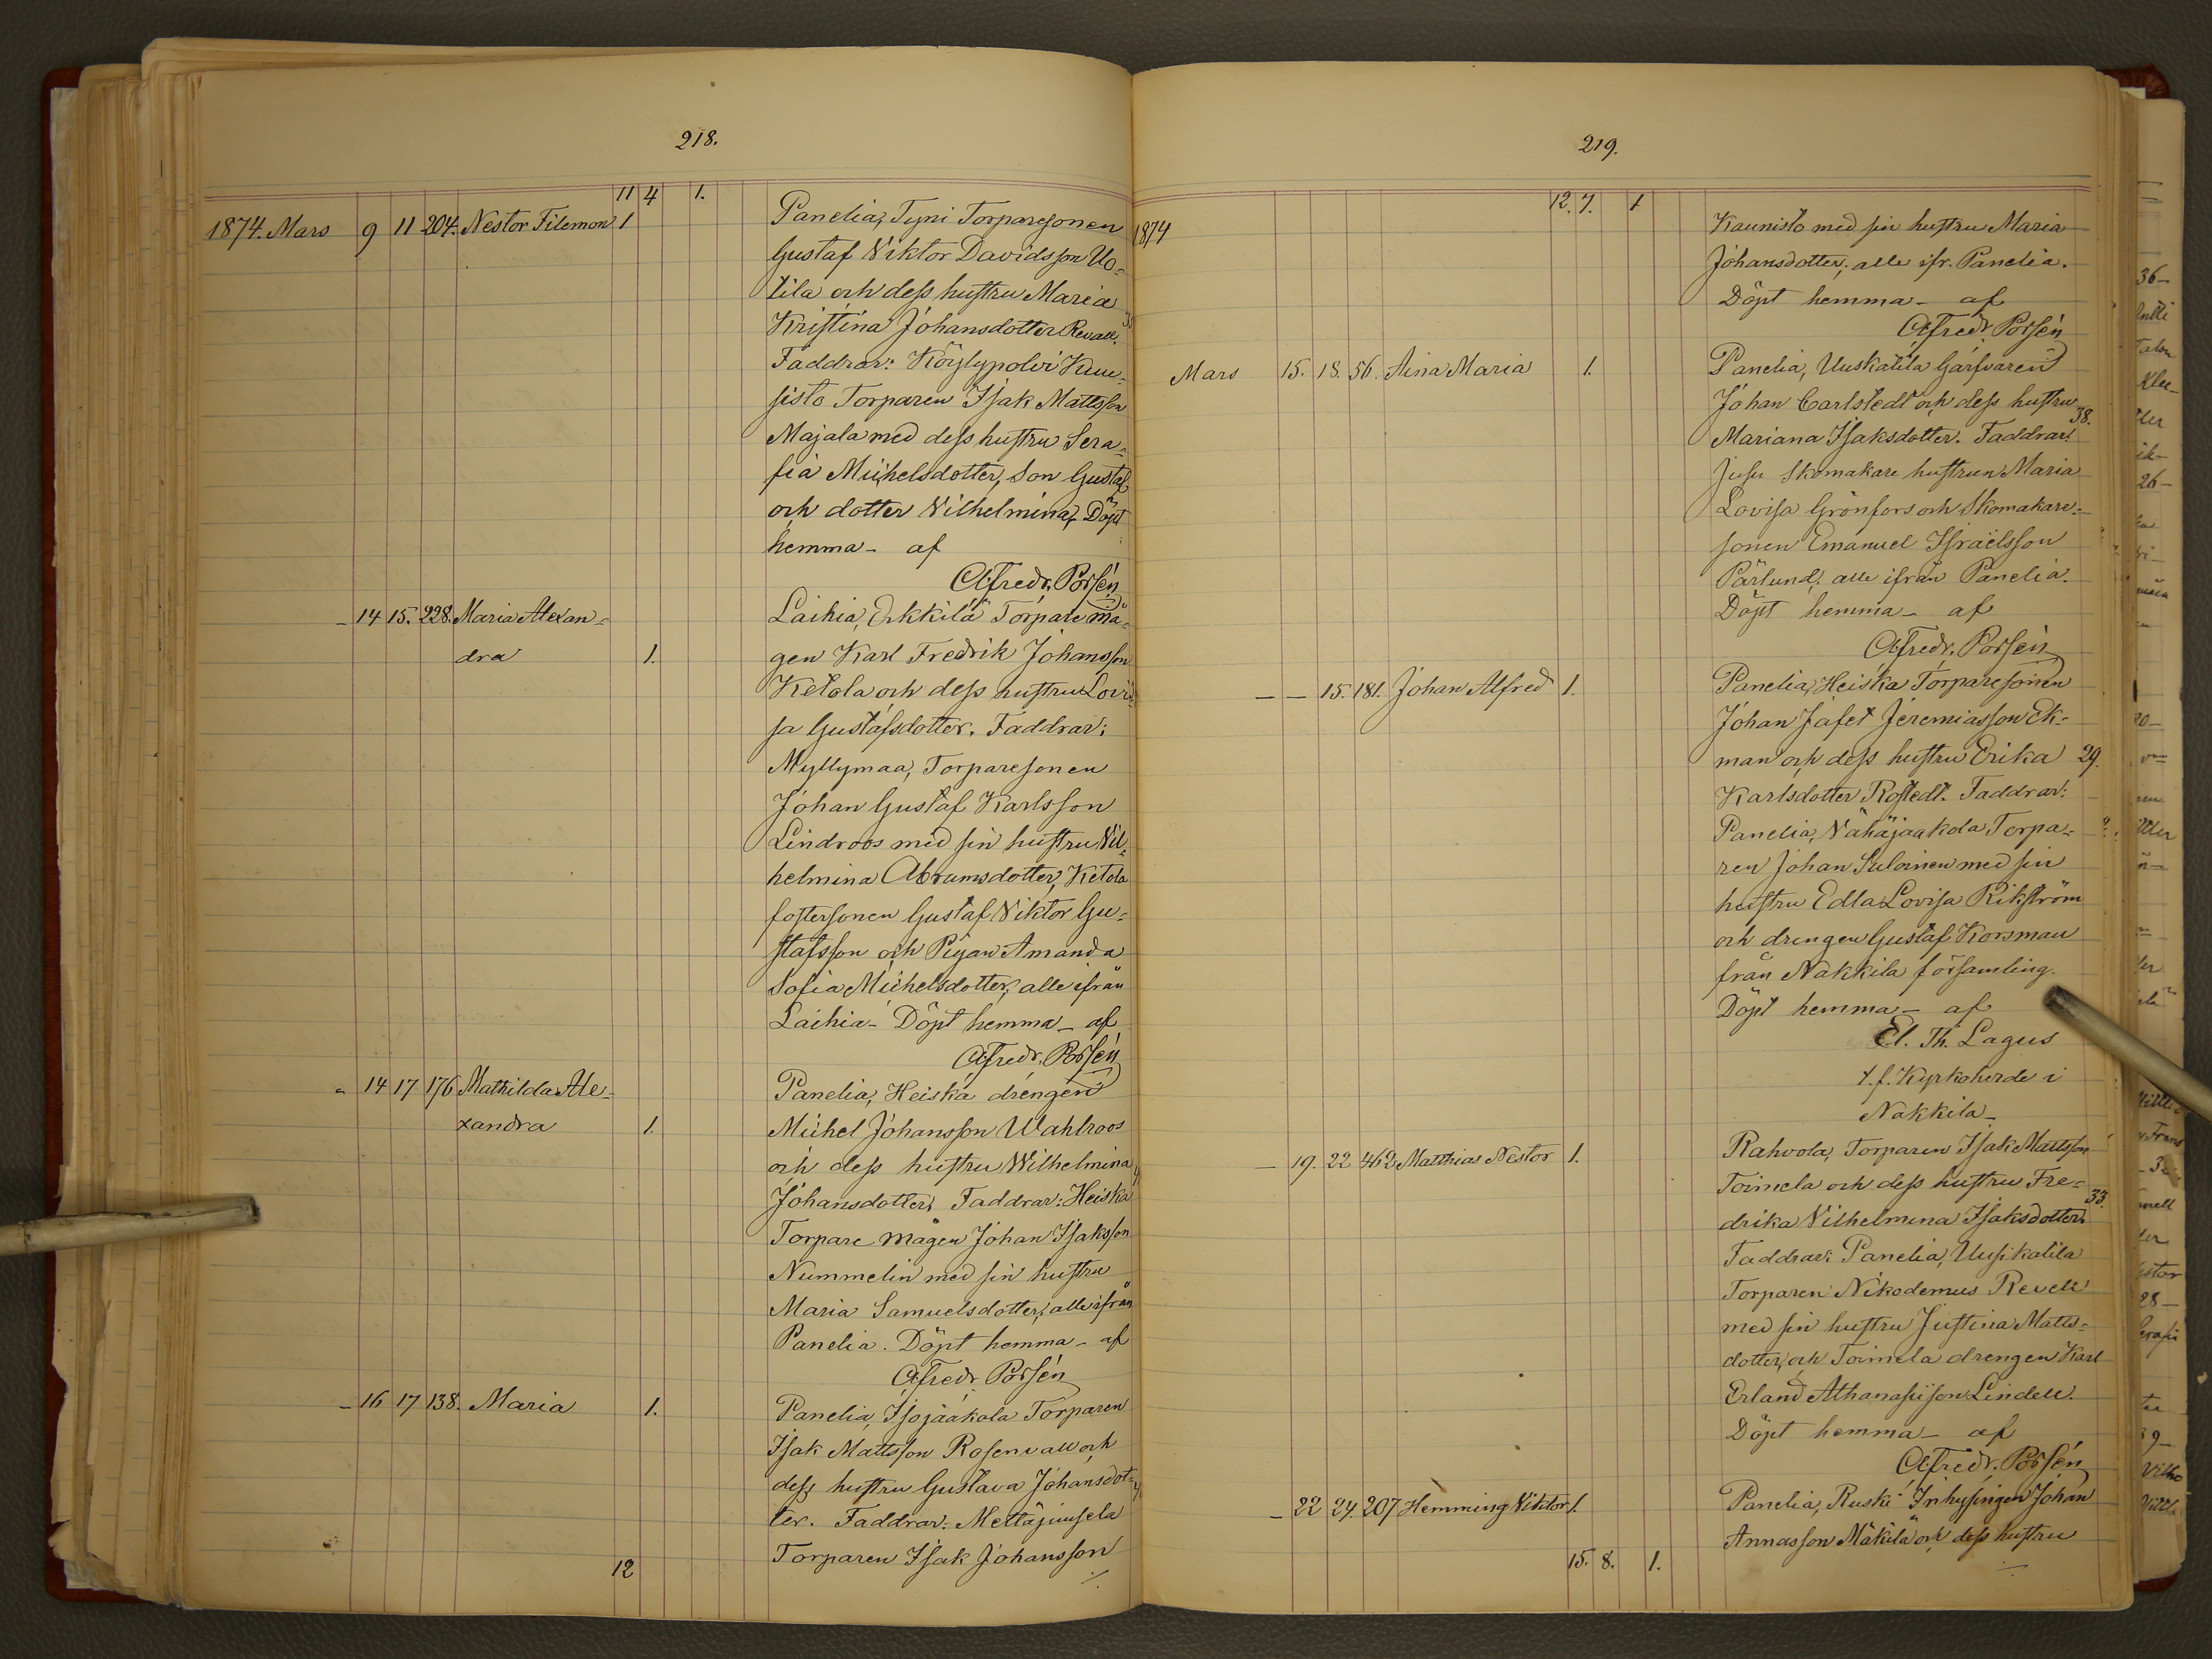 218.
11 4 1.
1874. Mars 9 11 204. Nestor Filemon 1 Panelia, Tyni Torparesonen
Gustaf Viktor Davidsson Uo-
tila och dess hustru Maria
Kristina Johansdotter Revall.
Faddrar: Köylypolvi Kau-
sisto Torparen Isak Mattsson
Majala med dess hustru Sera-
fia Michelsdotter, Son Gustaf
och dotter Vilhelmina, Döpt
hemma - af
Alfredr. Porsén
- 14 15. 228. Maria Alexan- Laihia, Erkkilä Torpare må-
dra 1. gen Karl Fredrik Johansson
Ketola och dess hustru Lovi-
sa Gustafsdotter. Faddrar:
Myllymaa, Torparesonen
Johan Gustaf Karlsson
Lindroos med sin hustru Vil-
helmina Abramsdotter, Ketola
fostersonen Gustaf Viktor Gu-
stafsson och Pigan Amanda
Sofia Michelsdotter, alle ifrån
Laihia - Döpt hemma - af
Alfredr. Porsén
- 14 17 176 Mathilda Ale- Panelia, Heiska drengen
xandra 1. Michel Johansson Wahlroos
och dess hustru Wilhelmina
Johansdotter. Faddrar: Heiska
Torpare mågen Johan Isaksson
Nummelin med sin hustru
Maria Samuelsdotter, alle ifrån
Panelia. Döpt hemma - af
Alfredr. Porsén
- 16 17 138. Maria 1. Panelia, Isojaakola Torparen
Isak Mattsson Rosenvall och
dess hustru Gustava Johansdot-
ter. Faddrar: Mettäjuusela
12 Torparen Isak Johansson
219.
12. 7. 1
1874 Kaunisto med sin hustru Maria
Johansdotter, alle ifr. Panelia.
Döpt hemma - af
Alfredr. Porsén
Mars 15. 18. 56. Aina Maria 1. Panelia, Uuskatila Garfvaren
Johan Carlstedt och dess hustru 38.
Mariana Isaksdotter. Faddrar:
Jusu Skomakare hustrun Maria
Lovisa Grönfors och Skomakare-
sonen Emanuel Israelsson
Pärlund, alle ifrån Panelia.
Döpt hemma - af
Alfredr. Porsén
- - 15. 181. Johan Alfred 1. Panelia, Heiska Torparesonen
Johan Jafet Jeremiasson Ek-
man och dess hustru Erika 29.
Karlsdotter Rostedt. Faddrar:
Panelia, Vähäjaakola Torpa-
ren Johan Suloinen med sin
hustru Edla Lovisa Rikström
och drengen Gustaf Korsman
från Nakkila församling.
Döpt hemma - af
El. Th. Lagus
t.f. Kyrkoherde i
Nakkila -
- 19. 22 462 Matthias Nestor 1. Rahvola, Torparen Isak Mattsson
Toimela och dess hustru Fre- 33.
drika Vilhelmina Isaksdotter.
Faddrar: Panelia, Uusikatila
Torparen Nikodemus Revell
med sin hustru Justina Matts-
dotter, och Toimela drengen Karl
Erland Athanasiison Lindell.
Döpt hemma - af
Alfredr. Porsén
- 22 24. 207 Hemming Viktor 1. Panelia, Ruski Inhysingen Johan
Annasson Mäkilä och dess hustru
15. 8. 1.